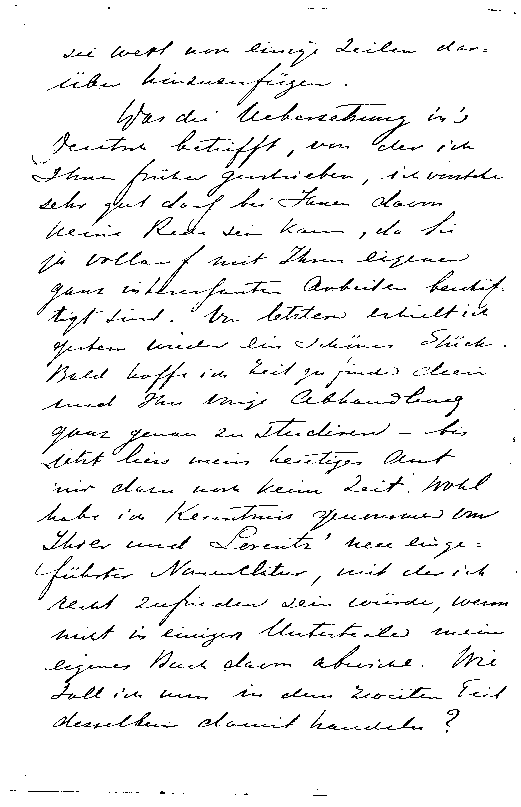 sei wohl noch einige Zeilen dar-
über hinzuzufügen.
Was die Uebersetzung in's
Deutsch betrifft, von der ich
Ihnen früher geschrieben, ich verstehe
sehr gut dass bei Ihnen davon
keine Rede sein kann, da Sie
ja vollauf mit Ihren eigenen
ganz interessanten Arbeiten beschäf-
tigt sind. Von letztern erhielt ich
gestern wieder ein schönes Stück.
Bald hoffe ich Zeit zu finden dieses
und Ihre vorige Abhandlung
ganz genau zu studiren – bis
jetzt liess mein heutiges Amt
mir dazu noch keine Zeit. Wohl
habe ich Kenntniss genommen von
Ihrer und Lorentz' neu einge-
führter Nomenclatur, mit der ich
recht zufrieden sein würde, wenn
nicht in einigen Unterteilen mein
eigenes Buch davon abwiche. Wie
soll ich nun in dem zweiten Teil
desselben damit handeln?